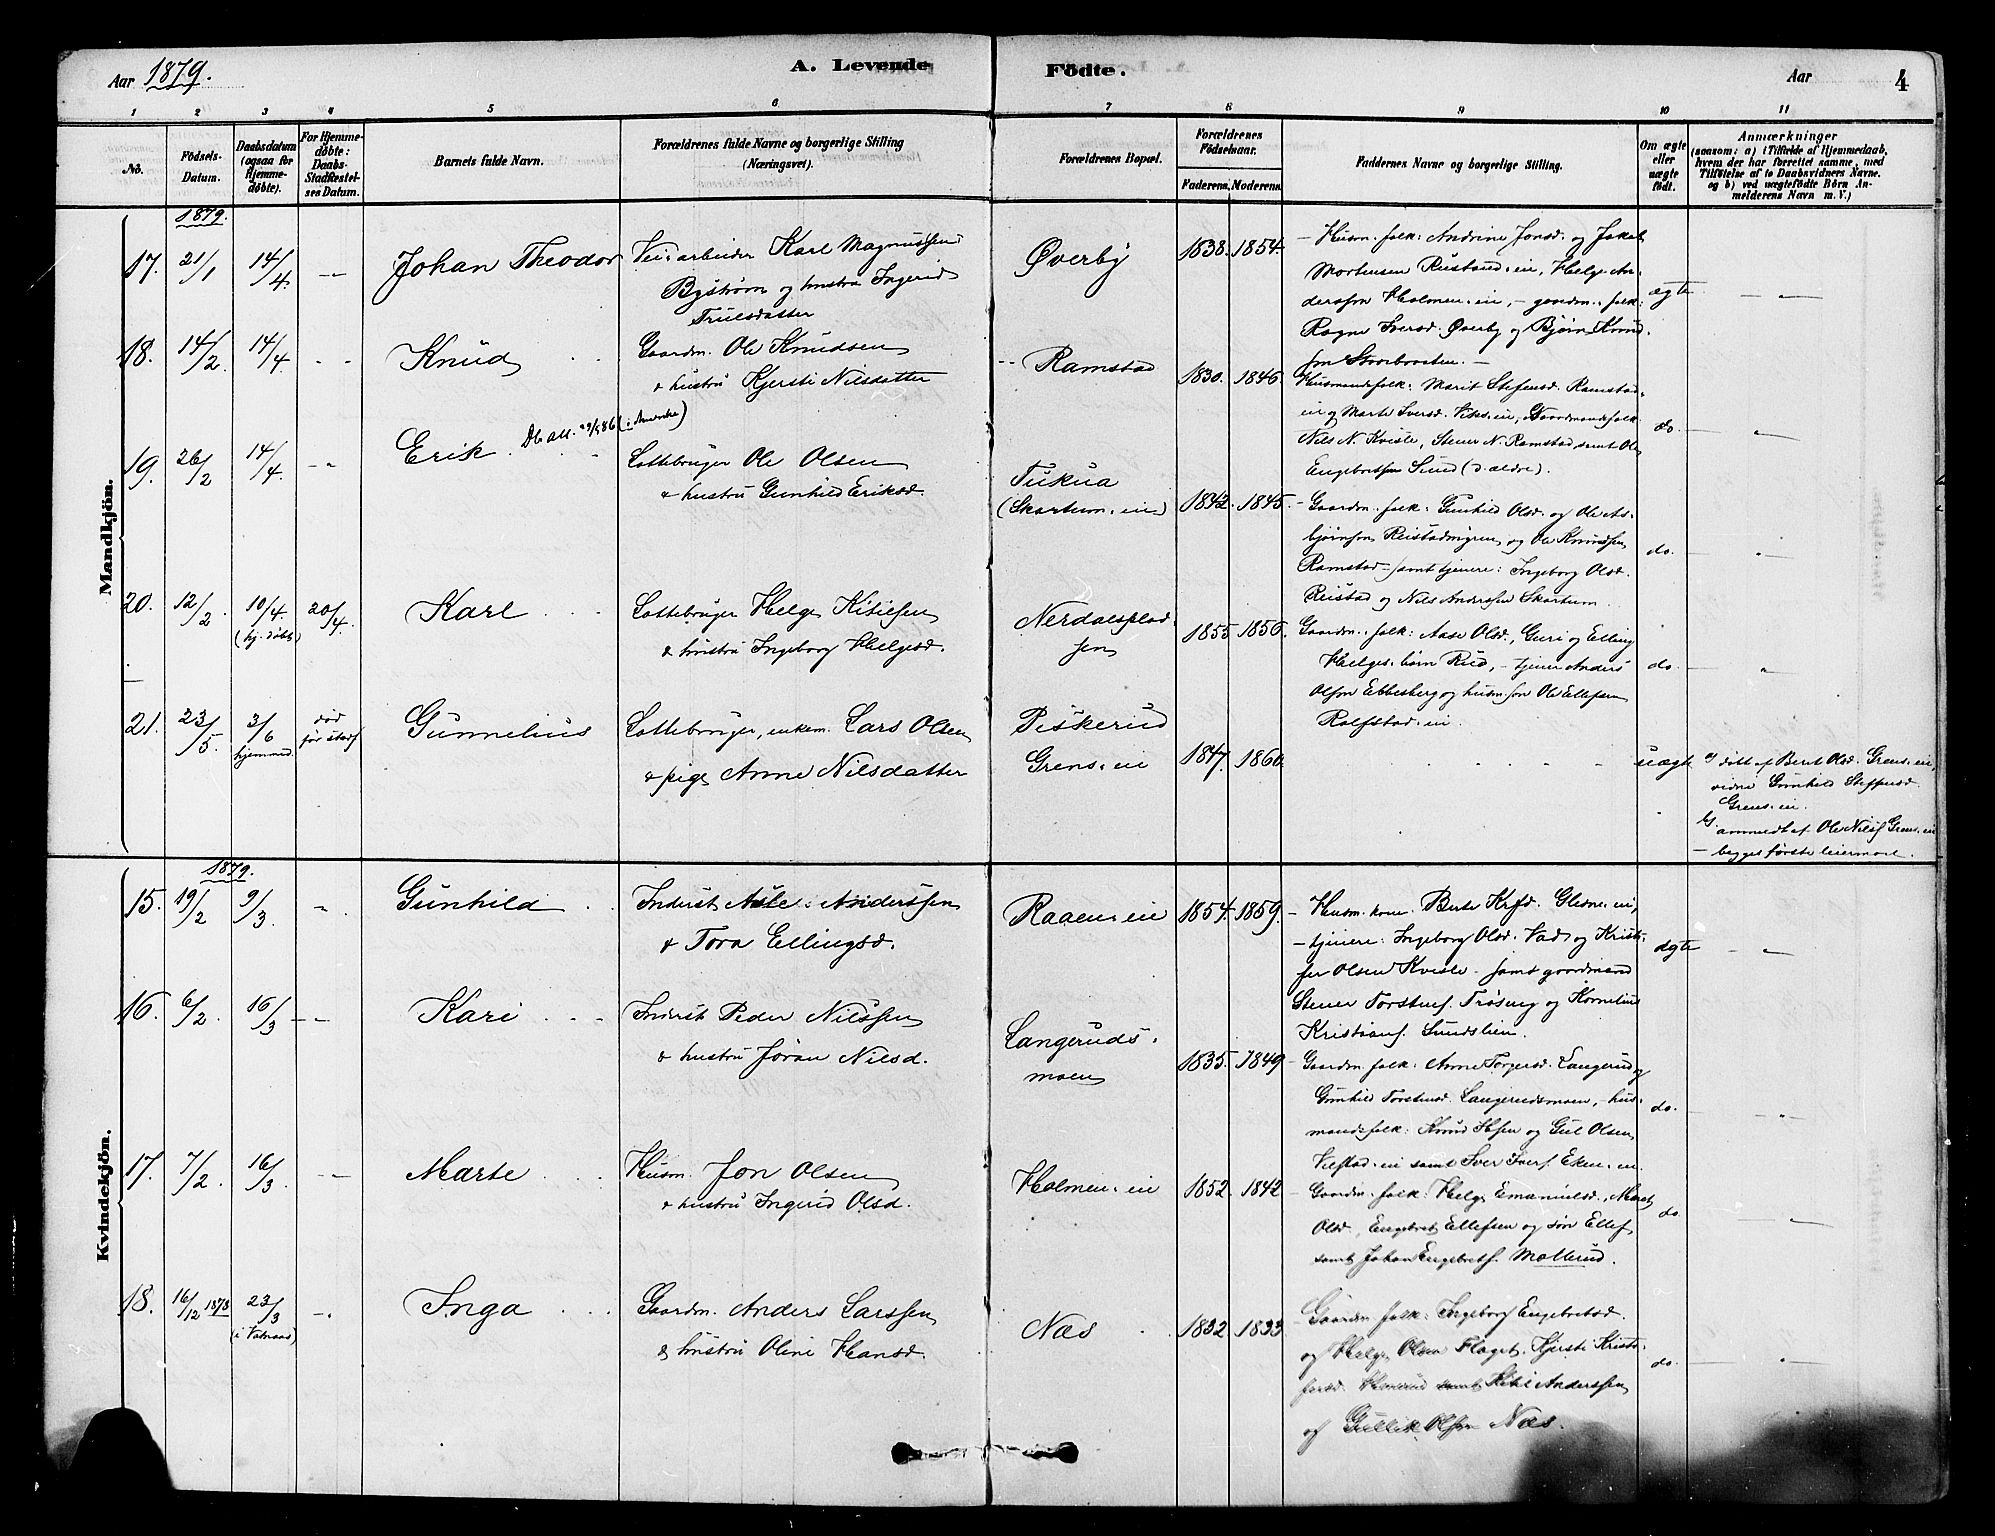 Aar 1879.
A. Levende Födte.
Aar
4
1 2 3 4 5 6 7 8 9 10 11
No.
Födsels-Datum.
Daabsdatum (ogsaa for Hjemme-döbte).
For Hjemme-döbte: Daabs-Stadfæstel-ses Datum.
Barnets fulde Navn.
Forældrenes fulde Navne og borgerlige Stilling (Næringsvei).
Forældrenes Bopæl.
Forældrenes Födselsaar.
Faderens. Moderens.
Faddernes Navne og borgerlige Stilling.
Om ægte eller uægte födt.
Anmærkninger
(saasom: a) i Tilfælde af Hjemmedaab, hvem der har forrettet samme, med Tilföielse af to Daabsvidners Navne. og b) ved uægtefödte Börn An-melderens Navn m. V.)
Mandkjön.
1879.
17. 21/1 14/4 Johan Theodor
Veiarbeider Karl Magnussen
Byström og hustru Ingerid
Trulsdatter
Øverby 1838. 1854.
Husm. folk: Andrine Jonsd. og Jakob
Mortensen Rustand. eie, Helge An-
derssøn Holmen. eie, – gaardm. folk:
Ragne Iversd. Øverby og Bjørn Knud
søn
ægte
18. 14/2 14/4 Knud
Gaardm. Ole Knudsen
& hustru Kjersti Nilsdatter
Ramstad 1830. 1846.
Husmandsfolk: Marit Stefensd. Ramstad-
eie og Marte Iversd. eie, Gaardmandsfolk
Nils N. Kvisle, Stener N. Ramstad samt Ole
Engebretsen Sund (d. ældre).
do.
19. 26/2 14/4 Erik
Lottebruger Ole Olsen
& hustru Gunhild Eriksd.
Tukua
(Skartum. eie) 1842. 1845.
Gaardm. folk: Gunhild Olsd. og Ole As-
bjørnsøn og Ole Knudsen
Ramstad – samt tjenere: Ingeborg Olsd.
Reistad og Nils Andersen Skartum.
do.
20. 12/2 10/4 (hj. døbt) 20/4 Karl
Lottebruger Helge Kittelsen
& hustru Ingeborg Helgesd.
Nerdalsplad
sen 1855 1856.
Gaardm. folk: Aase Olsd., Guri og Elling
Helges. børn Rud, – tjener Anders
Olsøn Ebbesberg og husm. søn Ole Ellefsen
Rolfstad. eie.
do.
21. 23/5. 3/6 hjemmed. død før stadf Gunnelius
Lottebruger, enkem. Lars Olsen
& pige Anne Nilsdatter
Piskerud
Grens. eie 1847. 1860.
uægte
a) døbt af Berit Olsd. Grens. eie,
vidne Gunhild Steffensd.
Grens. eie.
b) anmeldt af Ole Nilsf. Grens. eie
– begges første leiermaal.
Kvindekjön.
1879.
15. 19/2 9/3 Gunhild
Inderst Asle Anderssen
& Tora Ellingsd.
Raaen. eie 1854. 1859.
Husm. kone Berte Krfd. Glesne. eie,
– tjenere: Ingeborg Olsd. Vad og Kristo-
fer Olsen Kvisle – samt gaardmænd
Stener Torstens. og Kornelius
Kristians. Sundslien.
ægte
16. 6/2 16/3 Kari
Inderst Peder Nilssen
& hustru Jøran Nilsd.
Langeruds-
moen 1835. 1849
Gaardm. folk: Anne Torgersd. Langerud og
Gunhild Torstensd. Langerudsmoen, hus-
mandsfolk: Knud og Gul Olsen
eie samt Iver Ivers. Eken. eie
do.
17. 7/2 16/3 Marte
Husm. Jon Olsen
& hustru Ingerid Olsd.
Holmen. eie 1852. 1842
Gaardm. folk: Helge Emanuelsd., Marit
Olsd., Engebret Ellefsen og søn Ellef
samt Johan Engebretsf. Møllerud.
do.
18. 16/12 1878 23/3 (i Vatnaas) Inga
Gaardm. Anders Larssen
& hustru Oline Hansd.
Næs 1832. 1833
Gaardm. folk: Ingeborg Engebretsd.
og Helge Olsen Flaget. Kjersti Kristo-
fersd. samt Anderssen
og Gullik Olsen Næs.
do.